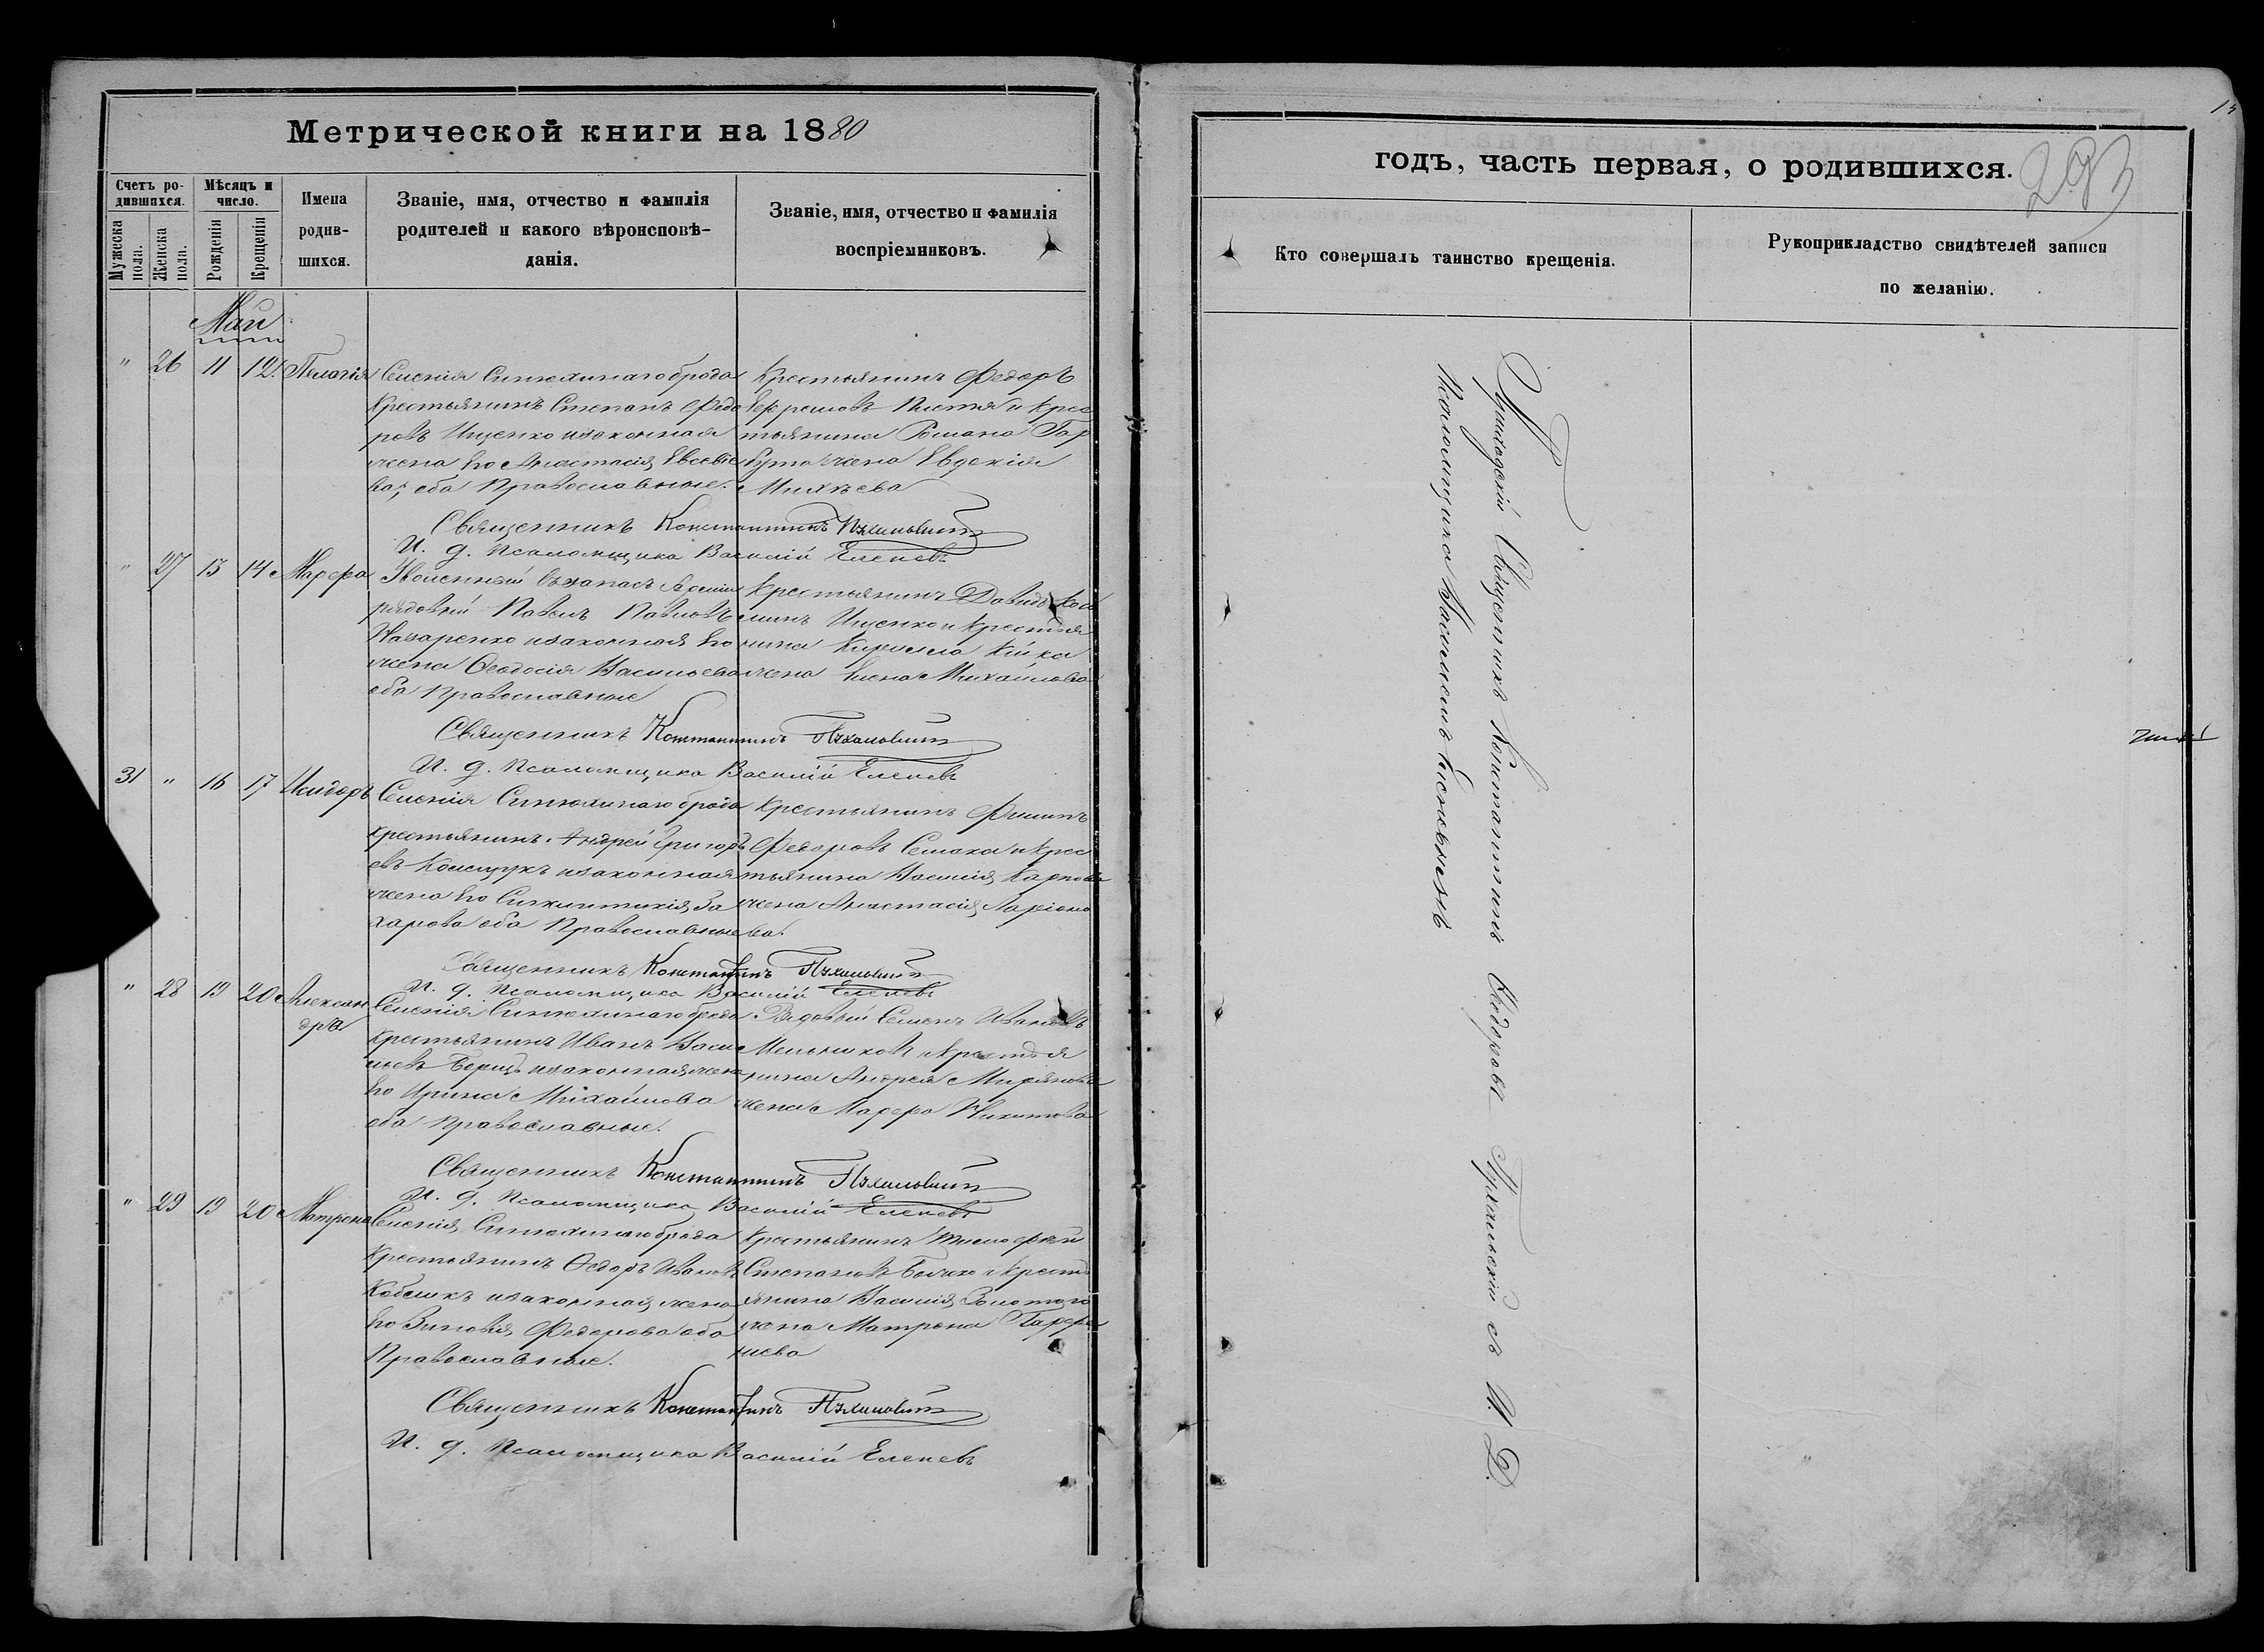 Метрической книги на 1880
Счетъ ро-
дившихся.
Мужеска пола.
Женска пола.
Мѣсяцъ и
число.
Рожденія
Крещенія
Имена
родив-
шихся.
Званіе, имя, отчество и фамилія
родителей и какого вѣроисповѣ-
данія.
Званіе, имя, отчество и фамилія
воспріемниковъ.
Май
" 26 11 12 Пелагія
Селенія Синюхинаго брода
Крестьянинъ Степанъ Федо
ровъ Ищенко и законная
жена его Анастасія Евсѣе
ва, оба Православные.
Крестьянинъ Федоръ
Плетня и Крес
тьянина Романа Гар
жена Евдокія
Священникъ Константинъ
И. д. Псаломщика Василій Еленевъ
" 27 13 14 Марфа
Уволенный въ запасъ Арміи
рядовый Павелъ Павловъ
Назаренко и законная его
жена Феодосія Васильева
оба Православные
Крестьянинъ Давидъ
Ищенко и Крестья
нина Кирилла
жена Елена Михайлова
Священникъ Константинъ
И. д. Псаломщика Василій Еленевъ
31 " 16 17 Исидоръ
Селенія Синюхинаго брода
крестьянинъ Андрей Григорь
евъ и законная
жена его Синклитикія За
харова оба Православные
Крестьянинъ Филипъ
Федоровъ Семака и Крес
тьянина Василія Карпова
жена Анастасія Ларіоно
ва.
Священникъ Константинъ
И. д. Псаломщика Василій Еленевъ
" 28 19 20 Алексан
дра
Селенія Синюхинаго брода
Крестьянинъ Иванъ Васи
льевъ и законная жена
его Ирина Михайлова
оба Православные.
Рядовый Семенъ Ивановъ
Мельниковъ и Крестья
нина Андрея
жена Марфа Никитова
Священникъ Константинъ
И. д. Псаломщика Василій Еленевъ
" 29 19 20 Матрона
Селенія Синюхинаго брода
Крестьянинъ Феодоръ Ивановъ
и законная жена
его Зиновія Федорова оба
Православные.
Крестьянинъ Тимофей
Степановъ и Кресть
янина Василія Золотаго
жена Матрона Парфе
ніева
Священникъ Константинъ
И. д. Псаломщика Василій Еленевъ
годъ, часть первая, о родившихся.
293
Кто совершалъ таинство крещенія.
Рукоприкладство свидѣтелей записи
по желанію.
Приходскій Священникъ Константинъ съ И. Д.
Псаломщика Василіемъ Еленевымъ